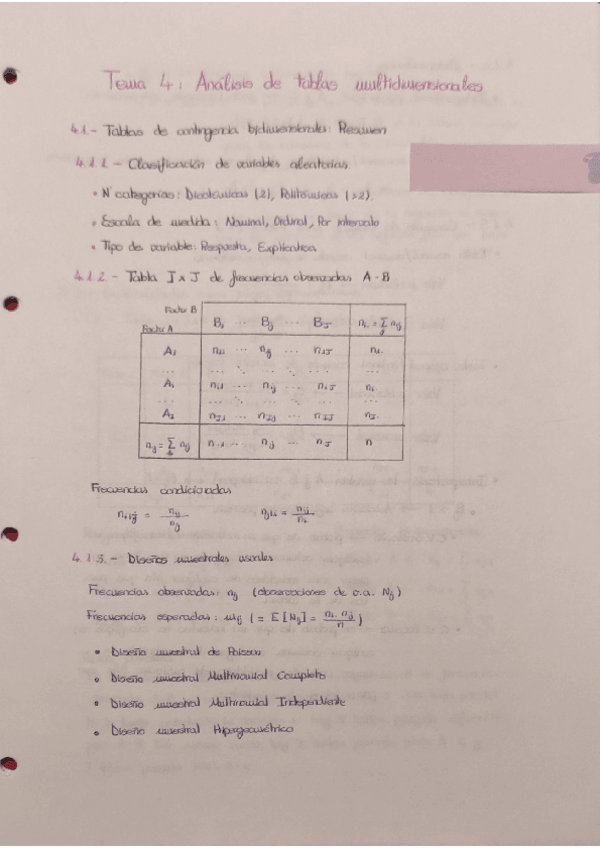 Tema 4: Análisis de tablas multidimensionales
4.1.- Tablas de contingencia bidimensionales: Resumen
4.1.1.- Clasificación de variables aleatorias.
• Nº categorías: Dicotómicas (2), Politómicas (>2).
• Escala de medida: Nominal, Ordinal, Por intervalo
• Tipo de variable: Respuesta, Explicativa
4.1.2.- Tabla I x J de frecuencias observadas A-B
Factor B
Factor A
B₁ ... Bⱼ ... B_J nᵢ. = Σⱼ nᵢⱼ
A₁ n₁₁ ... n₁ⱼ ... n₁J n₁.
... ... ... ... ...
Aᵢ nᵢ₁ ... nᵢⱼ ... nᵢJ nᵢ.
... ... ... ... ...
A_I n_I₁ ... n_Iⱼ ... n_IJ n_I.
n.ⱼ = Σᵢ nᵢⱼ n.₁ ... n.ⱼ ... n.J n
Frecuencias condicionadas
nᵢ|ⱼ = nᵢⱼ / n.ⱼ nⱼ|ᵢ = nᵢⱼ / nᵢ.
4.1.3.- Diseños muestrales usuales
Frecuencias observadas: nᵢⱼ (observaciones de v.a. Nᵢⱼ)
Frecuencias esperadas: mᵢⱼ (= E[Nᵢⱼ] = nᵢ. n.ⱼ / n)
• Diseño muestral de Poisson
• Diseño muestral Multinomial Completo
• Diseño muestral Multinomial Independiente
• Diseño muestral Hipergeométrico